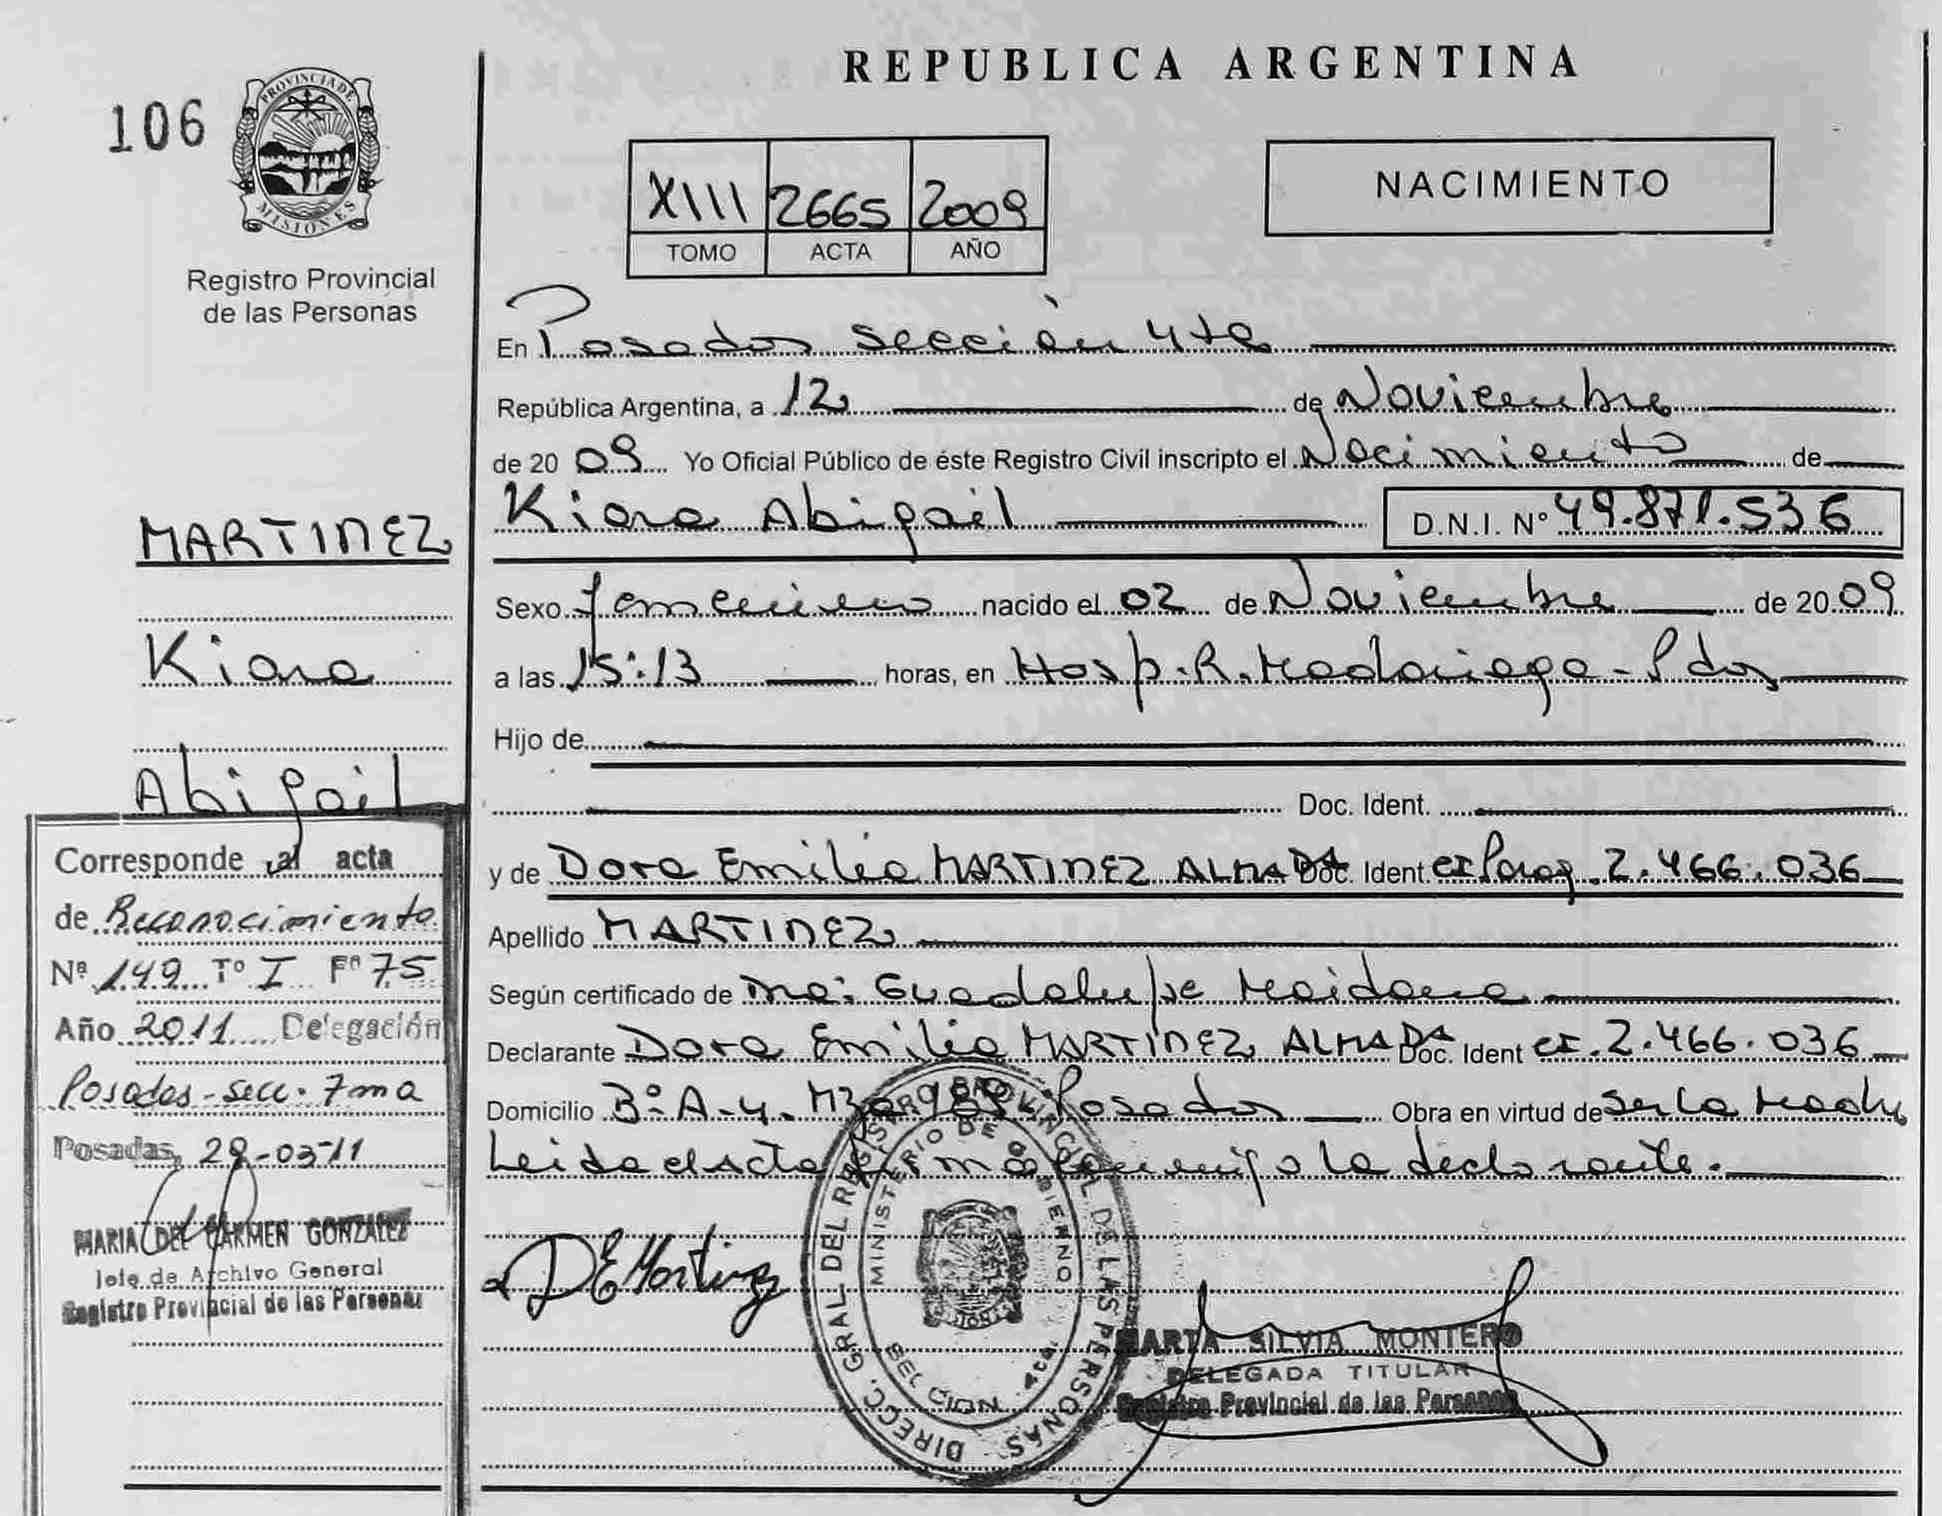 REPUBLICA ARGENTINA
106
PROVINCIA DE
MISIONES
Registro Provincial
de las Personas
XIII 2665 2009
TOMO ACTA AÑO
NACIMIENTO
En Posadas sección 4ta
República Argentina, a 12 de Noviembre
de 2009 Yo Oficial Público de éste Registro Civil inscripto el Nacimiento de
Kiara Abigail D.N.I. Nº 49.871.536
Sexo femenino nacido el 02 de Noviembre de 2009
a las 15:13 horas, en Hosp. R. Madariaga - Pdas
Hijo de
Doc. Ident.
y de Dora Emilia MARTINEZ ALMADA Doc. Ident CI Parag. 2.466.036
Apellido MARTINEZ
Según certificado de Ma: Guadalupe Maidana
Declarante Dora Emilia MARTINEZ ALMADA Doc. Ident CI. 2.466.036
Domicilio Bº A-4. Mza Posadas Obra en virtud de ser la Madre
Leida el Acta firma conmigo la declarante.
MARTINEZ
Kiara
Abigail
Corresponde al acta
de Reconocimiento
Nº 149 Tº I Fº 75
Año 2011 Delegación
Posadas - Secc. 7ma
Posadas, 29-03-11
MARIA DEL CARMEN GONZALEZ
Jefe de Archivo General
Registro Provincial de las Personas
DEMartinez
DIRECC. GRAL DEL REGISTRO PROVINCIAL DE LAS PERSONAS
MINISTERIO DE GOBIERNO
4ta.
MARTA SILVIA MONTERO
DELEGADA TITULAR
Registro Provincial de las Personas